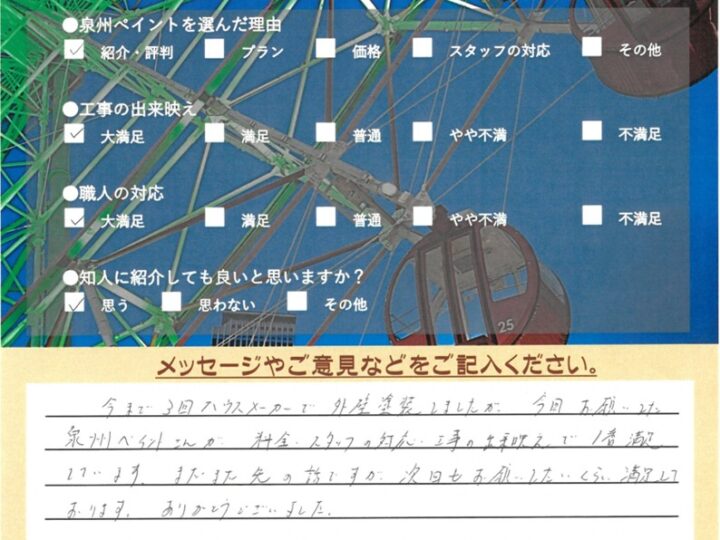 ●泉州ペイントを選んだ理由
紹介・評判 プラン 価格 スタッフの対応 その他
●工事の出来映え
大満足 満足 普通 やや不満 不満足
●職人の対応
大満足 満足 普通 やや不満 不満足
●知人に紹介しても良いと思いますか？
思う 思わない その他
25
メッセージやご意見などをご記入ください。
今まで3回ハウスメーカーで 外壁塗装しましたが、今回お願いした
泉州ペイントさんが 料金・スタッフの対応・工事の出来映えで1番満足
しています。まだまだ先の話ですが 次回もお願いしたいくらい満足して
おります。ありがとうございました。